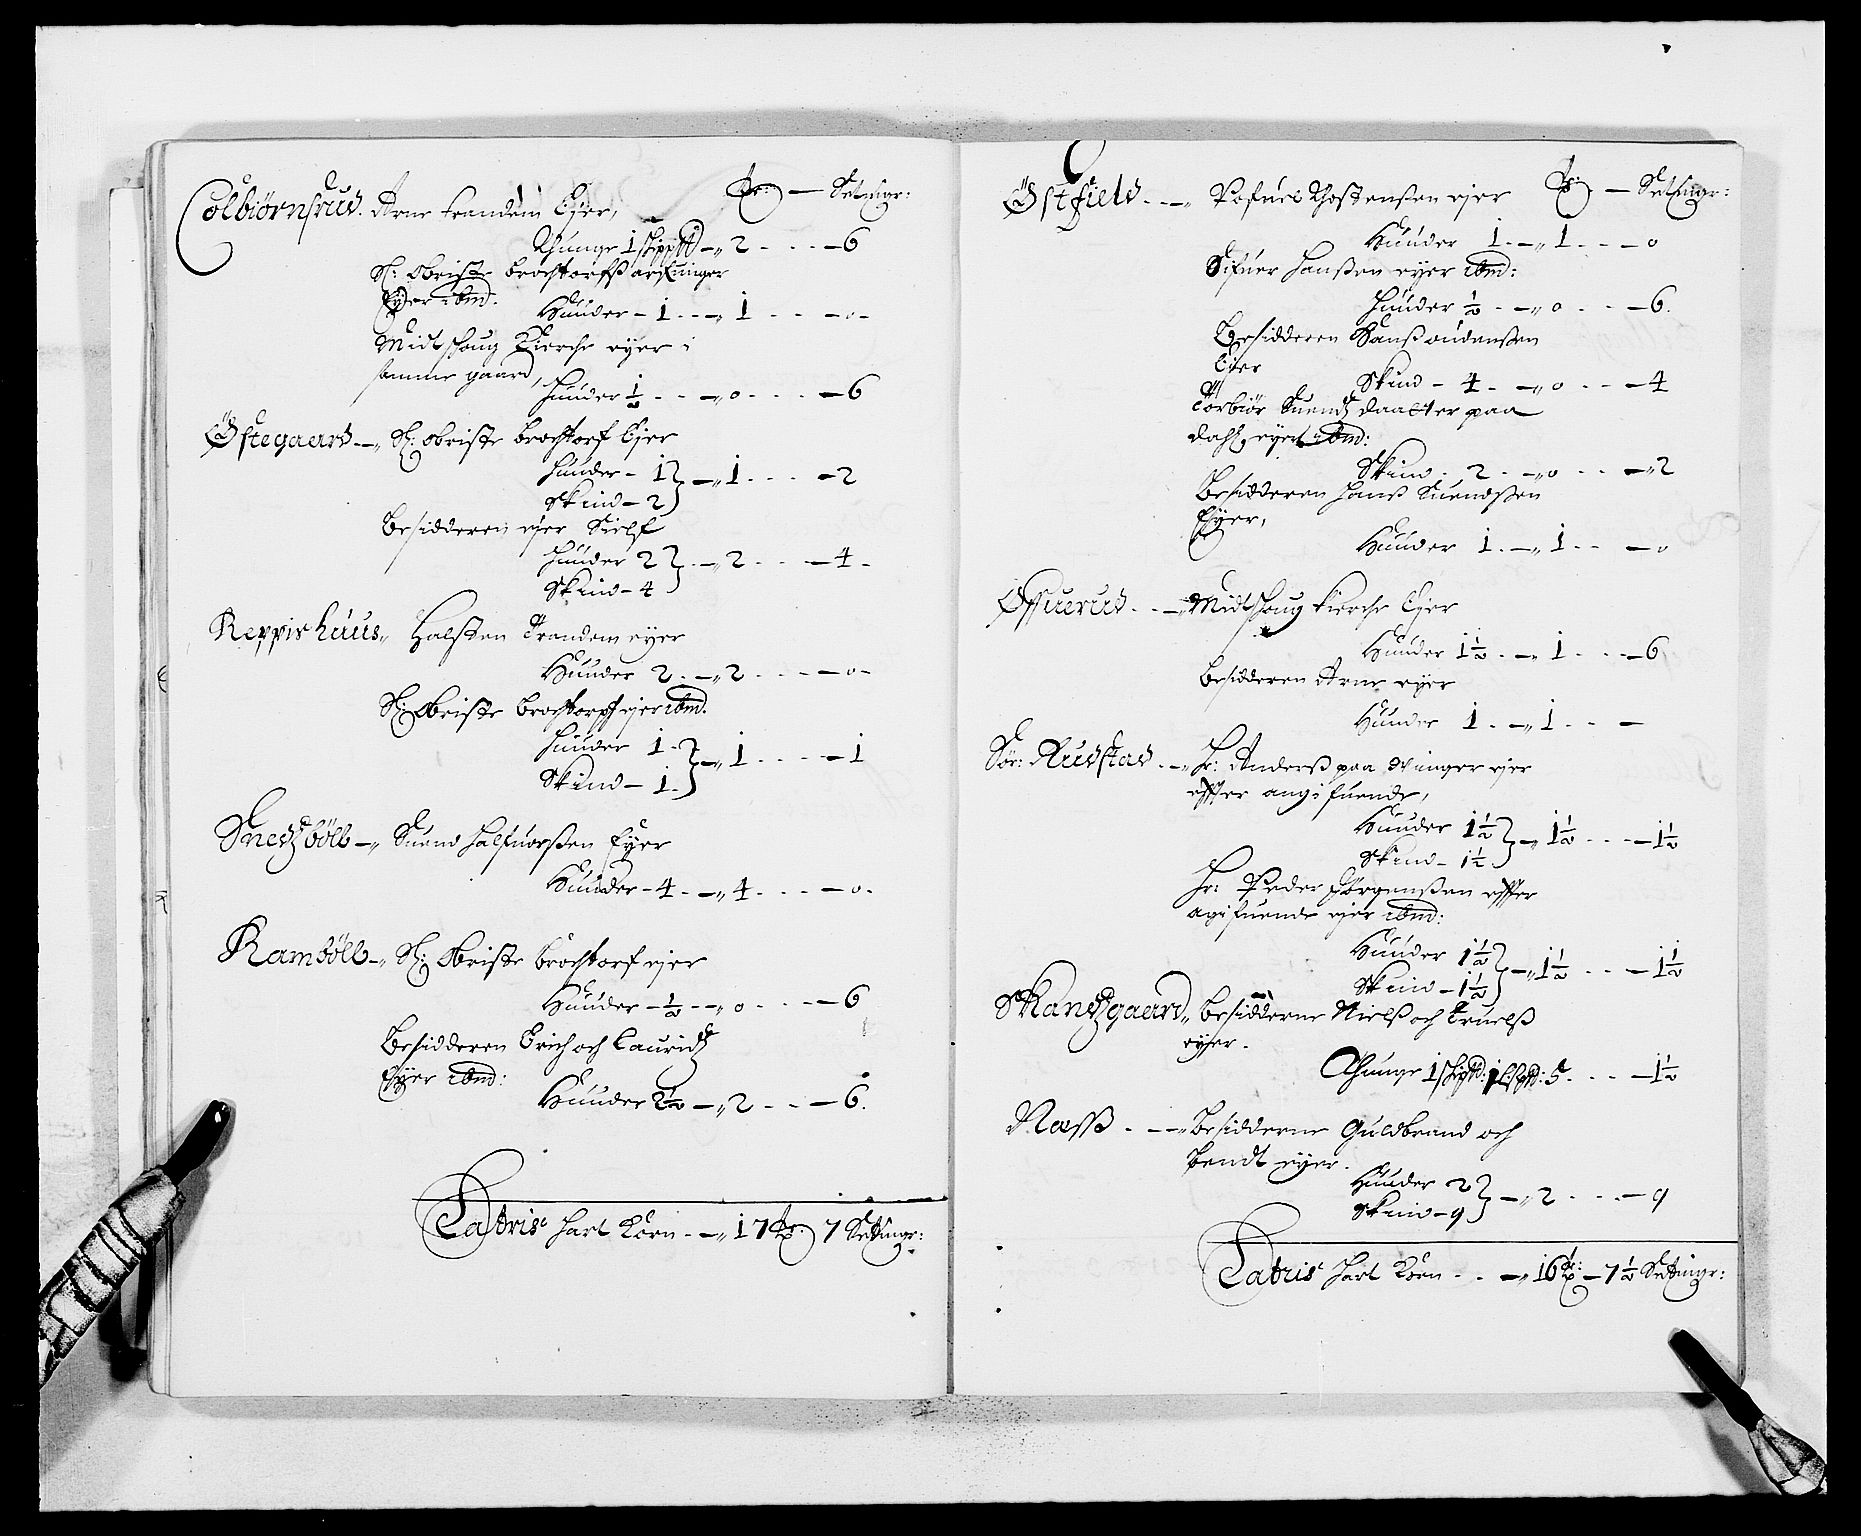 Colbiørnsrud. Arne trandem Ejer, Tr: — Setingr:
Thunge 1 skippd — 2 - - - — 6
Sl: Obriste brochtorfs arfuinger
Eyer ibm: Huuder — 1 - - — 1 - - - — 0 —
Midtschoug Kierche eyer i
samme gaard, huuder ½ - - — 0 - - - — 6
Østegaard — Sl: obriste brochtorf Ejer
huuder — 1 } — 1 - - - — 2
skind — 2
besidderen ejer Sielf
huuder 2 } - — 2 - - - — 4 -
Skind — 4
Reppishuus, Halsten Trandem eyer
Huuder 2 - — 2 - - - — 0 —
Sl: Obriste brochtorpf ejer ibm:
huuder 1 - } — 1 - - - — 1
Skind — 1
Snedsbøll — Suend halfuorßen Eyer
Huuder — 4 - — 4 - - - — 0 -
Rambøll — Sl: Obriste brochtorf ejer
Huuder — ½ - — 0 - - - — 6
besidderen Erich och Lauridz
Eyer ibm:
Huuder 2½ — 2 - - - — 6.
Latris hart Korn - — 17 Tr: 7 Settingr:
Østfield - - — Pofuel Thostenßen ejer Tr: — Settingr:
Huuder 1 - — 1 - - - — 0
Sifuer hanßen eyer ibm:
huuder ½ - — 0 - - - — 6.
Besidderen Hanß Audenßen
Ejer
Skind — 4 - — 0 - - - — 4
Torbiør Suends daatter paa
dahl, eyer ibm:
Skind - 2 - — 0 - - - — 2
besidderen hans Suendßen
Eyer,
Huuder 1 - — 1 - - — 0
Øssuerud - - — Midtschoug kierche Ejer
Huuder 1½ - — 1 - - - — 6
besidderen Arne eyer
Huuder 1 - — 1 - - - —
Sør: Rudstad - — Hr: Anderß paa Winger ejer
efter angifuende,
Huuder 1½ } — 1½ - - - — 1½
Skind — 1½
Hr: Peder Jørgenßen efter
agifuende ejer ibm:
Huuder 1½ } — 1½ - - - — 1½
Skind — 1½
Skandsgaard, besidderne Nielß och Truelß
eyer.
Thunge 1 skipd: 1 lispd: 5 - - - — 1½
Næss - - — besidderne Guldbrand och
bendt eyer.
Huuder 2 } — 2 - - - — 9
skind — 9
Latris hart Korn - - — 16 Tr: — 7½ Settingr: